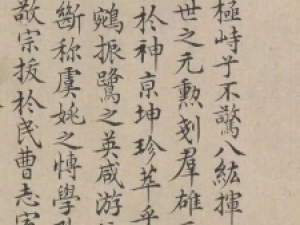 極峙乎不驚八紘揮
世之元勲刻羣雄
於神京坤珍萃乎
鵷振鷺之英咸游
斷稱虞姚之博學
敬宗拔於民曹志寧